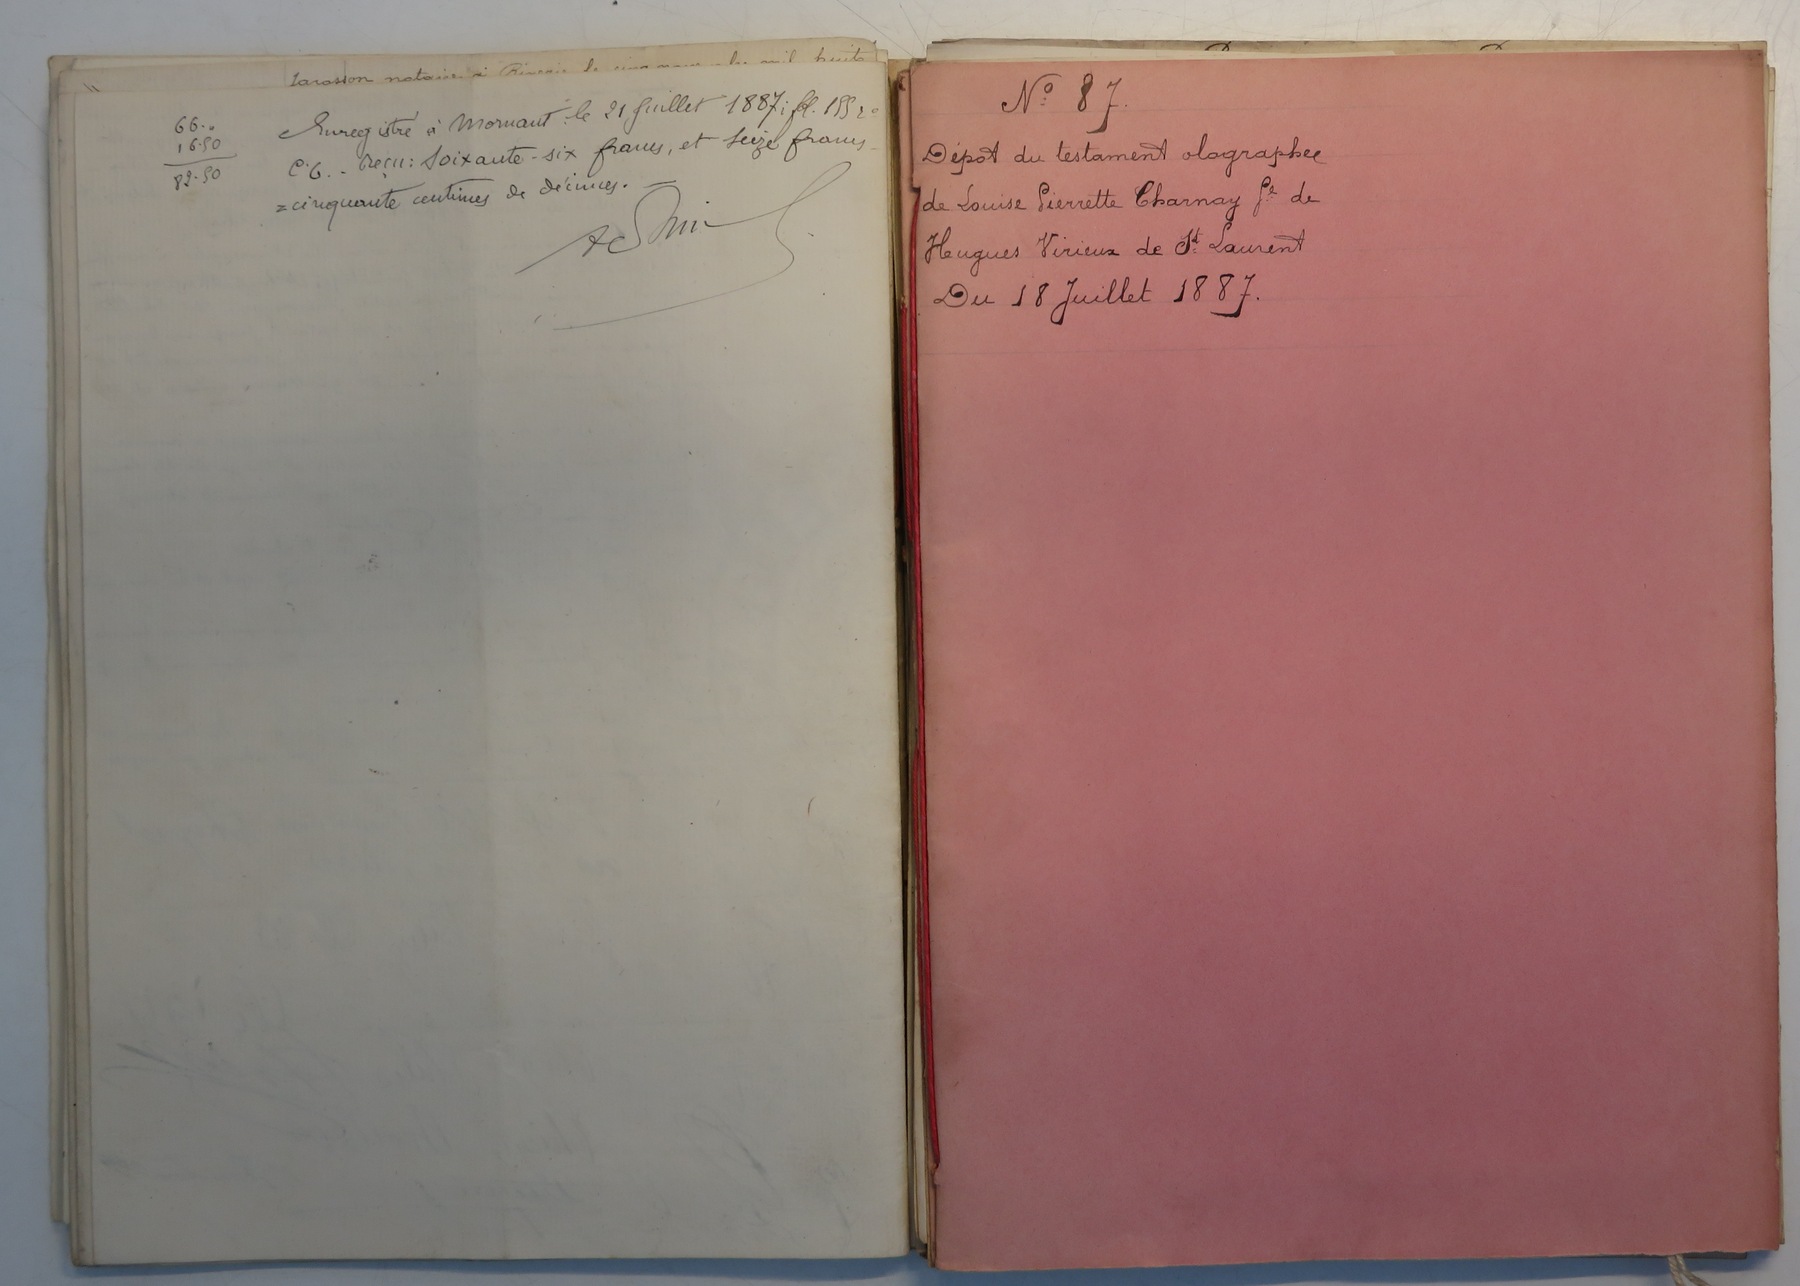 notaire à Riverie le cinq mil huit
66..
16.50
82.50
Enregistré à Mornant le 21 Juillet 1887, fol. 199 ro
C 6. - Reçu: Soixante-six francs, et seize francs
=cinquante centimes de décimes. —
No 87.
Dépot du testament olographee
de Louise Pierrette Charnay fe de
Hugues Virieux de St Laurent
Du 18 Juillet 1887.